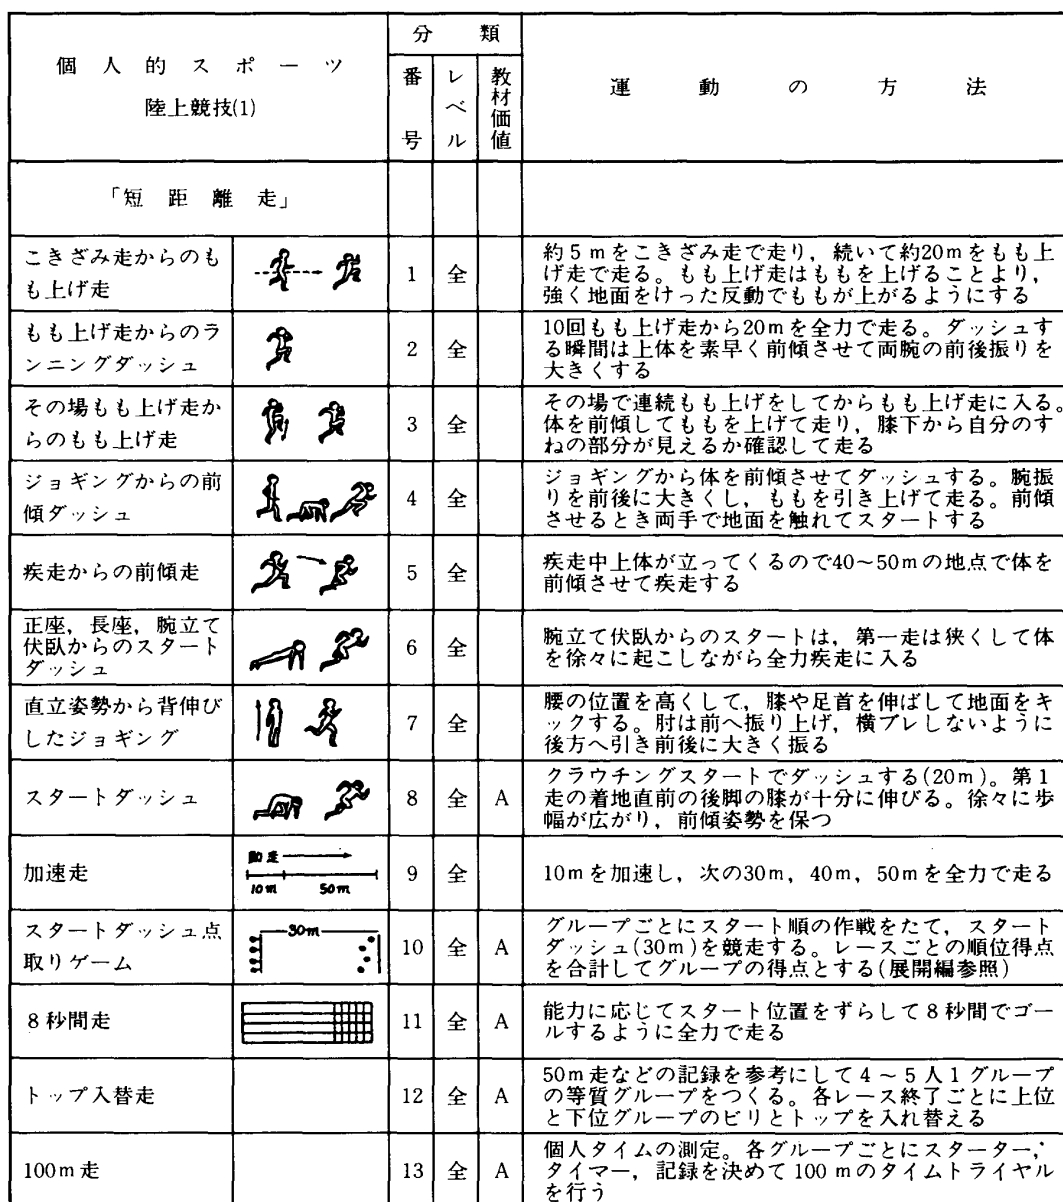 個人的スポーツ
陸上競技(1)
分類
番号
レベル
教材価値
運動の方法
「短距離走」
こきざみ走からのも
も上げ走
1
全
約5mをこきざみ走で走り，続いて約20mをもも上
げ走で走る。もも上げ走はももを上げることより，
強く地面をけった反動でももが上がるようにする
もも上げ走からのラ
ンニングダッシュ
2
全
10回もも上げ走から20mを全力で走る。ダッシュす
る瞬間は上体を素早く前傾させて両腕の前後振りを
大きくする
その場もも上げ走か
らのもも上げ走
3
全
その場で連続もも上げをしてからもも上げ走に入る。
体を前傾してももを上げて走り，膝下から自分のす
ねの部分が見えるか確認して走る
ジョギングからの前
傾ダッシュ
4
全
ジョギングから体を前傾させてダッシュする。腕振
りを前後に大きくし，ももを引き上げて走る。前傾
させるとき両手で地面を触れてスタートする
疾走からの前傾走
5
全
疾走中上体が立ってくるので40～50mの地点で体を
前傾させて疾走する
正座，長座，腕立て
伏臥からのスタート
ダッシュ
6
全
腕立て伏臥からのスタートは，第一走は狭くして体
を徐々に起こしながら全力疾走に入る
直立姿勢から背伸び
したジョギング
7
全
腰の位置を高くして，膝や足首を伸ばして地面をキ
ックする。肘は前へ振り上げ，横ブレしないように
後方へ引き前後に大きく振る
スタートダッシュ
8
全
A
クラウチングスタートでダッシュする(20m)。第1
走の着地直前の後脚の膝が十分に伸びる。徐々に歩
幅が広がり，前傾姿勢を保つ
加速走
助走
10m
50m
9
全
10mを加速し，次の30m，40m，50mを全力で走る
スタートダッシュ点
取りゲーム
30m
10
全
A
グループごとにスタート順の作戦をたて，スタート
ダッシュ(30m)を競走する。レースごとの順位得点
を合計してグループの得点とする(展開編参照)
8秒間走
11
全
A
能力に応じてスタート位置をずらして8秒間でゴー
ルするように全力で走る
トップ入替走
12
全
A
50m走などの記録を参考にして4～5人1グループ
の等質グループをつくる。各レース終了ごとに上位
と下位グループのビリとトップを入れ替える
100m走
13
全
A
個人タイムの測定。各グループごとにスターター，
タイマー，記録を決めて100mのタイムトライヤル
を行う